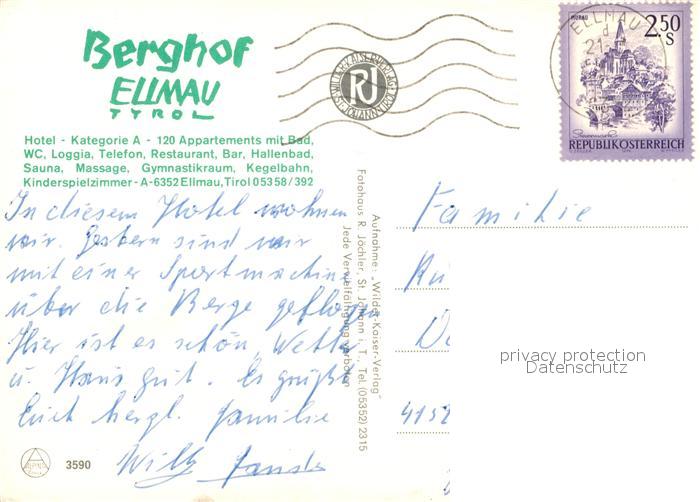 Berghof
ELLMAU
TYROL
Hotel - Kategorie A - 120 Appartements mit Bad,
WC, Loggia, Telefon, Restaurant, Bar, Hallenbad,
Sauna, Massage, Gymnastikraum, Kegelbahn,
Kinderspielzimmer - A-6352 Ellmau, Tirol 05358/392
In diesem Hotel wohnen
wir. Gestern sind wir
mit einer Sportmaschine
über die Berge geflogen
Hier ist es schön, Wetter
u. Haus gut. Es grüßt
Euch herzl. Familie
Willy
ALPINA
3590
Aufnahme: „Wilder-Kaiser-Verlag"
Fotohaus R. Jöchler, St. Johann i. T., Tel. (05352) 2315
Jede Vervielfältigung verboten
RJ
ELLMAU
MURAU
2.50
S
REPUBLIK ÖSTERREICH
Familie
4152
privacy protection
Datenschutz